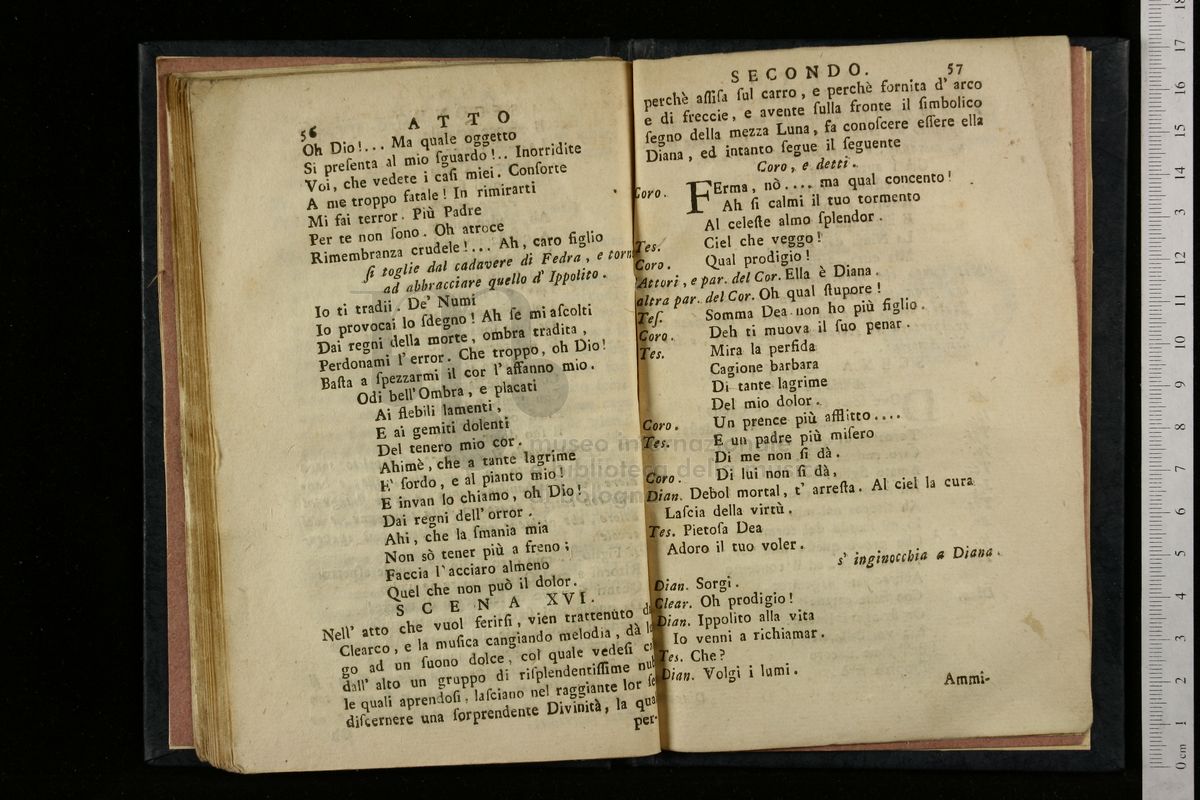 56
ATTO
Oh Dio!... Ma quale oggetto
Si preſenta al mio ſguardo!.. Inorridite
Voi, che vedete i caſi miei. Conſorte
A me troppo fatale! In rimirarti
Mi fai terror. Più Padre
Per te non ſono. Oh atroce
Rimembranza crudele!... Ah, caro figlio
ſi toglie dal cadavere di Fedra, e torn
ad abbracciare quello d' Ippolito.
Io ti tradii. De' Numi
Io provocai lo ſdegno! Ah ſe mi aſcolti
Dai regni della morte, ombra tradita,
Perdonami l' error. Che troppo, oh Dio!
Baſta a ſpezzarmi il cor l' affanno mio.
Odi bell' Ombra, e placati
Ai flebili lamenti,
E ai gemiti dolenti
Del tenero mio cor.
Ahimè, che a tante lagrime
E' ſordo, e al pianto mio!
E invan lo chiamo, oh Dio!
Dai regni dell' orror.
Ahi, che la ſmania mia
Non sò tener più a freno;
Faccia l' acciaro almeno
Quel che non può il dolor.
SCENA XVI.
Nell' atto che vuol ferirſi, vien trattenuto d
Clearco, e la muſica cangiando melodia, dà l
go ad un ſuono dolce, col quale vedeſi c
dall' alto un gruppo di riſplendentiſſime nu
le quali aprendoſi, laſciano nel raggiante lor ſe
diſcernere una ſorprendente Divinità, la qua
per-
SECONDO. 57
perchè aſſiſa ſul carro, e perchè fornita d' arco
e di freccie, e avente ſulla fronte il ſimbolico
ſegno della mezza Luna, fa conoſcere eſſere ella
Diana, ed intanto ſegue il ſeguente
Coro, e detti.
Coro. FErma, nò.... ma qual concento!
Ah ſi calmi il tuo tormento
Al celeſte almo ſplendor.
Tes. Ciel che veggo!
Coro. Qual prodigio!
Attori, e par. del Cor. Ella è Diana.
altra par. del Cor. Oh qual ſtupore!
Teſ. Somma Dea non ho più figlio.
Coro. Deh ti muova il ſuo penar.
Tes. Mira la perfida
Cagione barbara
Di tante lagrime
Del mio dolor.
Coro. Un prence più afflitto....
Tes. E un padre più miſero
Di me non ſi dà.
Coro. Di lui non ſi dà,
Dian. Debol mortal, t' arreſta. Al ciel la cura
Laſcia della virtù.
Tes. Pietoſa Dea
Adoro il tuo voler.
s' inginocchia a Diana.
Dian. Sorgi.
Clear. Oh prodigio!
Dian. Ippolito alla vita
Io venni a richiamar.
Tes. Che?
Dian. Volgi i lumi.
Ammi-
museo internazionale
e biblioteca della musica
di bologna
0 cm 1 2 3 4 5 6 7 8 9 10 11 12 13 14 15 16 17 18